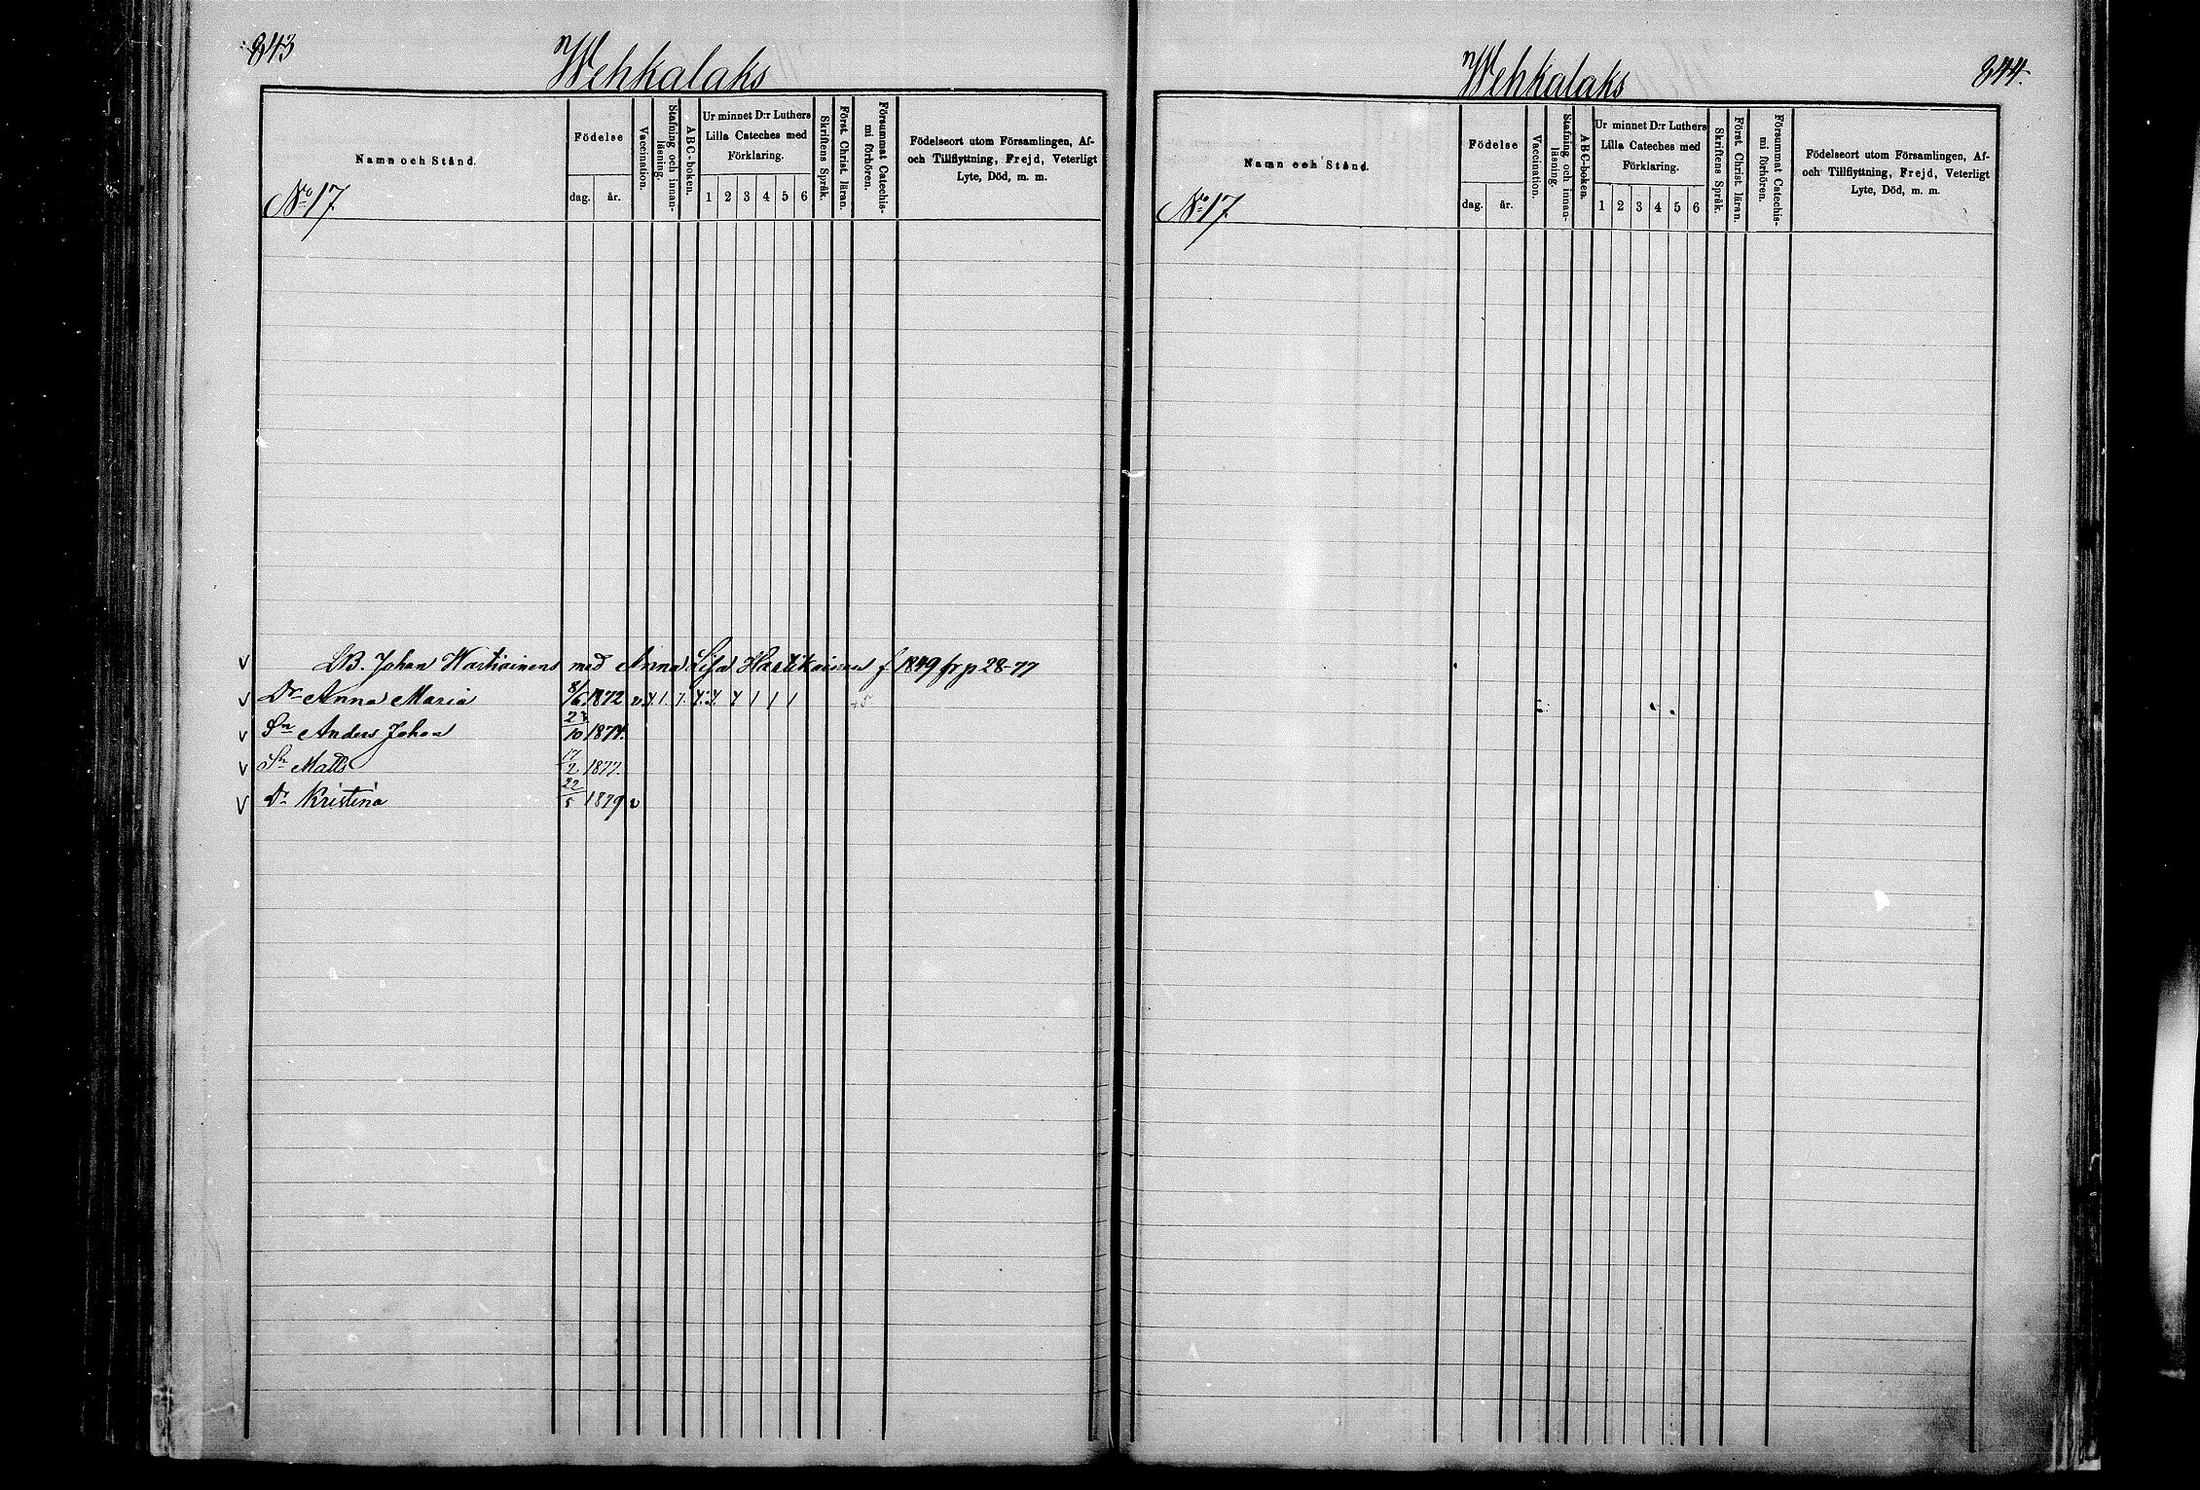 843
Wehkalaks
Namn och Stånd.
Födelse
dag.
år.
Vaccination.
Stafning och innanläsning.
ABC-boken.
Ur minnet D:r Luthers
Lilla Cateches med
Förklaring.
1 2 3 4 5 6
Skriftens Språk.
Först. Christ. läran.
Försummat Catechismi förhören.
Födelseort utom Församlingen, Af-
och Tillflyttning, Frejd, Veterligt
Lyte, Död, m. m.
No 17.
v Johan Wartiainens med Anna Lisa Hartikainen f. 1849 fr p 28-77
v Dr Anna Maria 8/6 1872 v
v Sn Anders Johan 10
v Sn Matts 17/2 1877.
v Dr Kristina 22/5 1879 v
Wehkalaks
844.
Namn och Stånd.
Födelse
dag.
år.
Vaccination.
Stafning och innanläsning.
ABC-boken.
Ur minnet D:r Luthers
Lilla Cateches med
Förklaring.
1 2 3 4 5 6
Skriftens Språk.
Först. Christ. läran.
Försummat Catechismi förhören.
Födelseort utom Församlingen, Af-
och Tillflyttning, Frejd, Veterligt
Lyte, Död, m. m.
No 17.